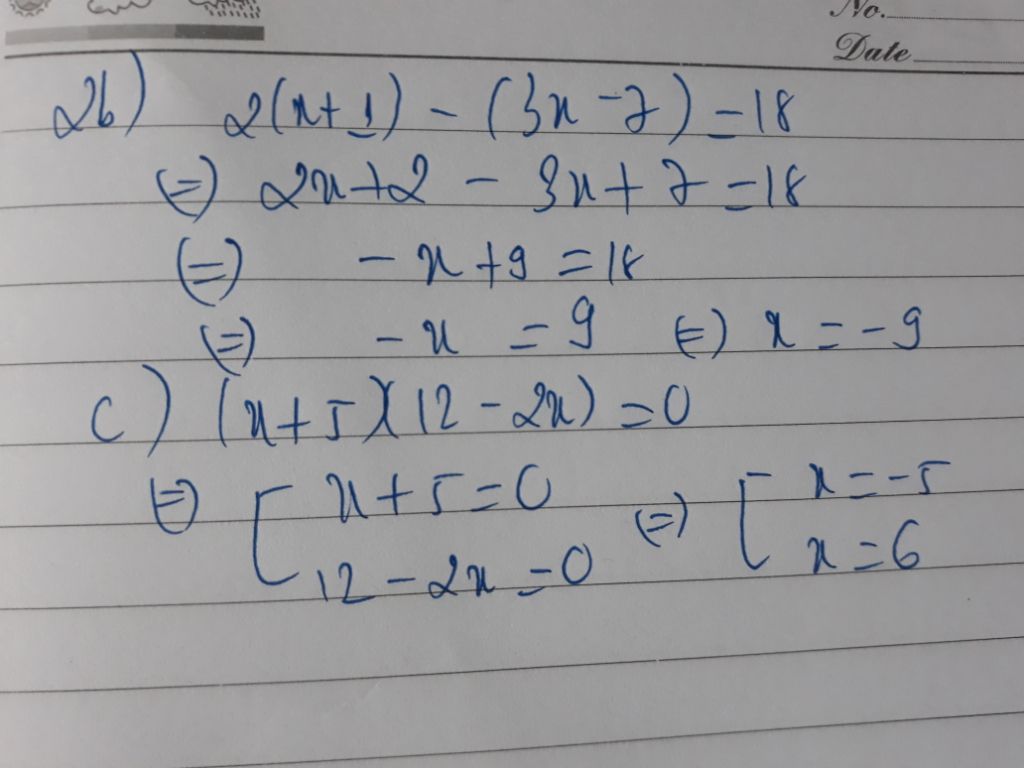 No.
Date
2b) 2(x+1) - (3x-7) = 18
(=) 2x+2 - 3x+7 = 18
(=) -x+9 = 18
(=) -x = 9 (=) x = -9
c) (x+5)(12-2x) = 0
(=) [ x+5=0 (=) [ x=-5
12-2x=0 x=6